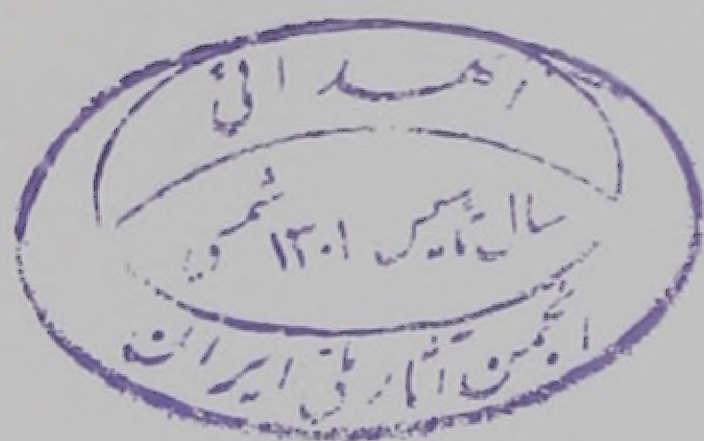 اهدائی
سال تأسیس ۱۳۰۱
انجمن آثار ملی ایران